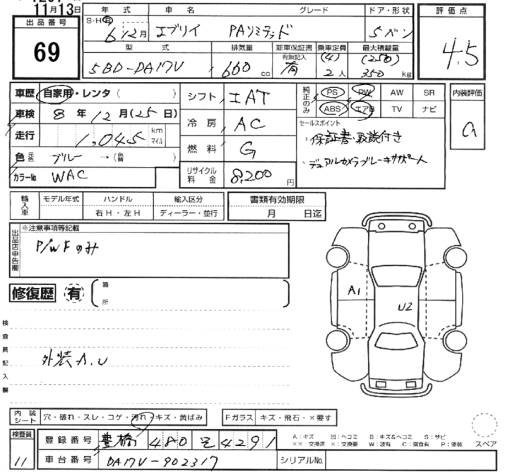 11月13日
出品番号
69
年式
車名
グレード
ドア・形状
S・H
6年12月
エブリイ
PAリミテッド
5バン
型式
排気量
並車保証書
乗車定員
最大積載量
有無記入
(4)
(250)
5BD-DA17V
660cc
有
2人
350kg
評価点
4.5
車歴
自家用・レンタ( )
車検
8年12月(25日)
走行
1,045
km
マイル
色
ブルー
→(替 )
カラーNo
WAC
シフト
IAT
冷房
AC
燃料
G
リサイクル料金
8,200円
純正のみ
PS
PW
AW
SR
ABS
エアB
TV
ナビ
セールスポイント
・保証書・取説付き
・デュアルカメラブレーキサポート
内装評価
a
輸入車
モデル年式
ハンドル
輸入区分
年
右H・左H
ディーラー・並行
書類有効期限
月 日迄
出品店申告欄
※注意事項等記載
P/WFのみ
修復歴
有
箇所
検査員記入欄
外装A.U
A1
U2
内装シート
穴・破れ・スレ・コゲ・汚れ・キズ・黄ばみ
Fガラス
キズ・飛石・×要す
検査員
11
登録番号
豊橋 480 Ž 4291
車台番号
DA17V-902317
シリアルNo.
A:キズ
U:ヘコミ
B:キズ&ヘコミ
S:サビ
××:交換済
×:要交換
W:波有
C:腐食有
P:塗装
スペア